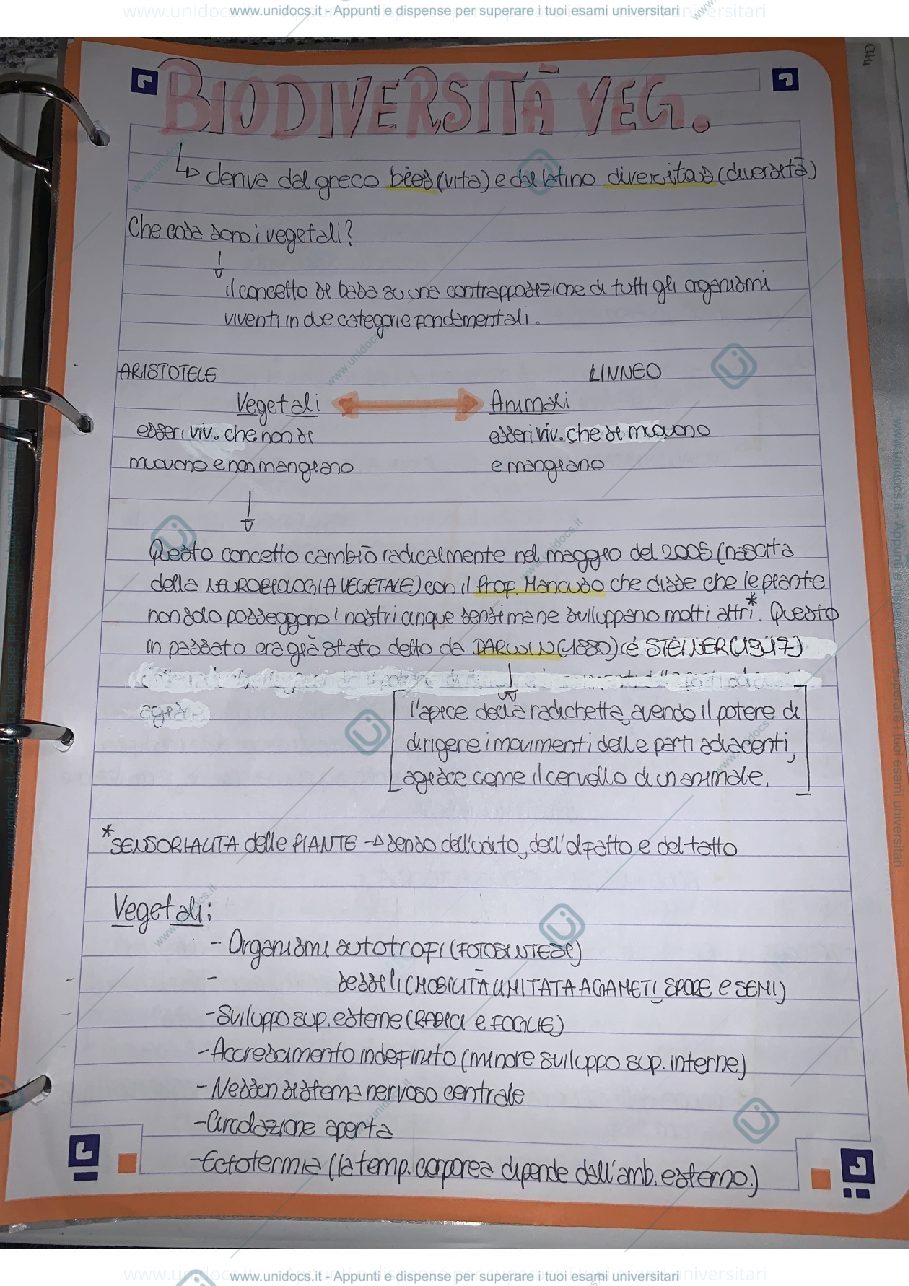 www.unidocs.it - Appunti e dispense per superare i tuoi esami universitari
BIODIVERSITÀ VEG.
↳ deriva dal greco bios (vita) e dal latino diversitas (diversità)
Che cosa sono i vegetali?
↓
il concetto si basa su una contrapposizione di tutti gli organismi
viventi in due categorie fondamentali.
ARISTOTELE LINNEO
Vegetali ↔ Animali
esseri viv. che non si esseri viv. che si muovono
muovono e non mangiano e mangiano
↓
Questo concetto cambiò radicalmente nel maggio del 2005 (nascita
della NEUROBIOLOGIA VEGETALE) con il Prof. Mancuso che disse che le piante
non solo posseggono i nostri cinque sensi ma ne sviluppano molti altri*. Questo
in passato era già stato detto da DARWIN (1880) e STEINER (1917)
↓
l'apice della radichetta, avendo il potere di
dirigere i movimenti delle parti adiacenti,
agisce come il cervello di un animale.
*SENSORIALITA delle PIANTE → senso dell'udito, dell'olfatto e del tatto
Vegetali:
- Organismi autotrofi (FOTOSINTESI)
- sessili (MOBILITÀ LIMITATA A GAMETI, SPORE e SEMI)
- Sviluppo sup. esterne (RADICI e FOGLIE)
- Accrescimento indefinito (minore sviluppo sup. interne)
- Nessun sistema nervoso centrale
- Circolazione aperta
- Ectotermia (la temp. corporea dipende dall'amb. esterno.)
www.unidocs.it - Appunti e dispense per superare i tuoi esami universitari